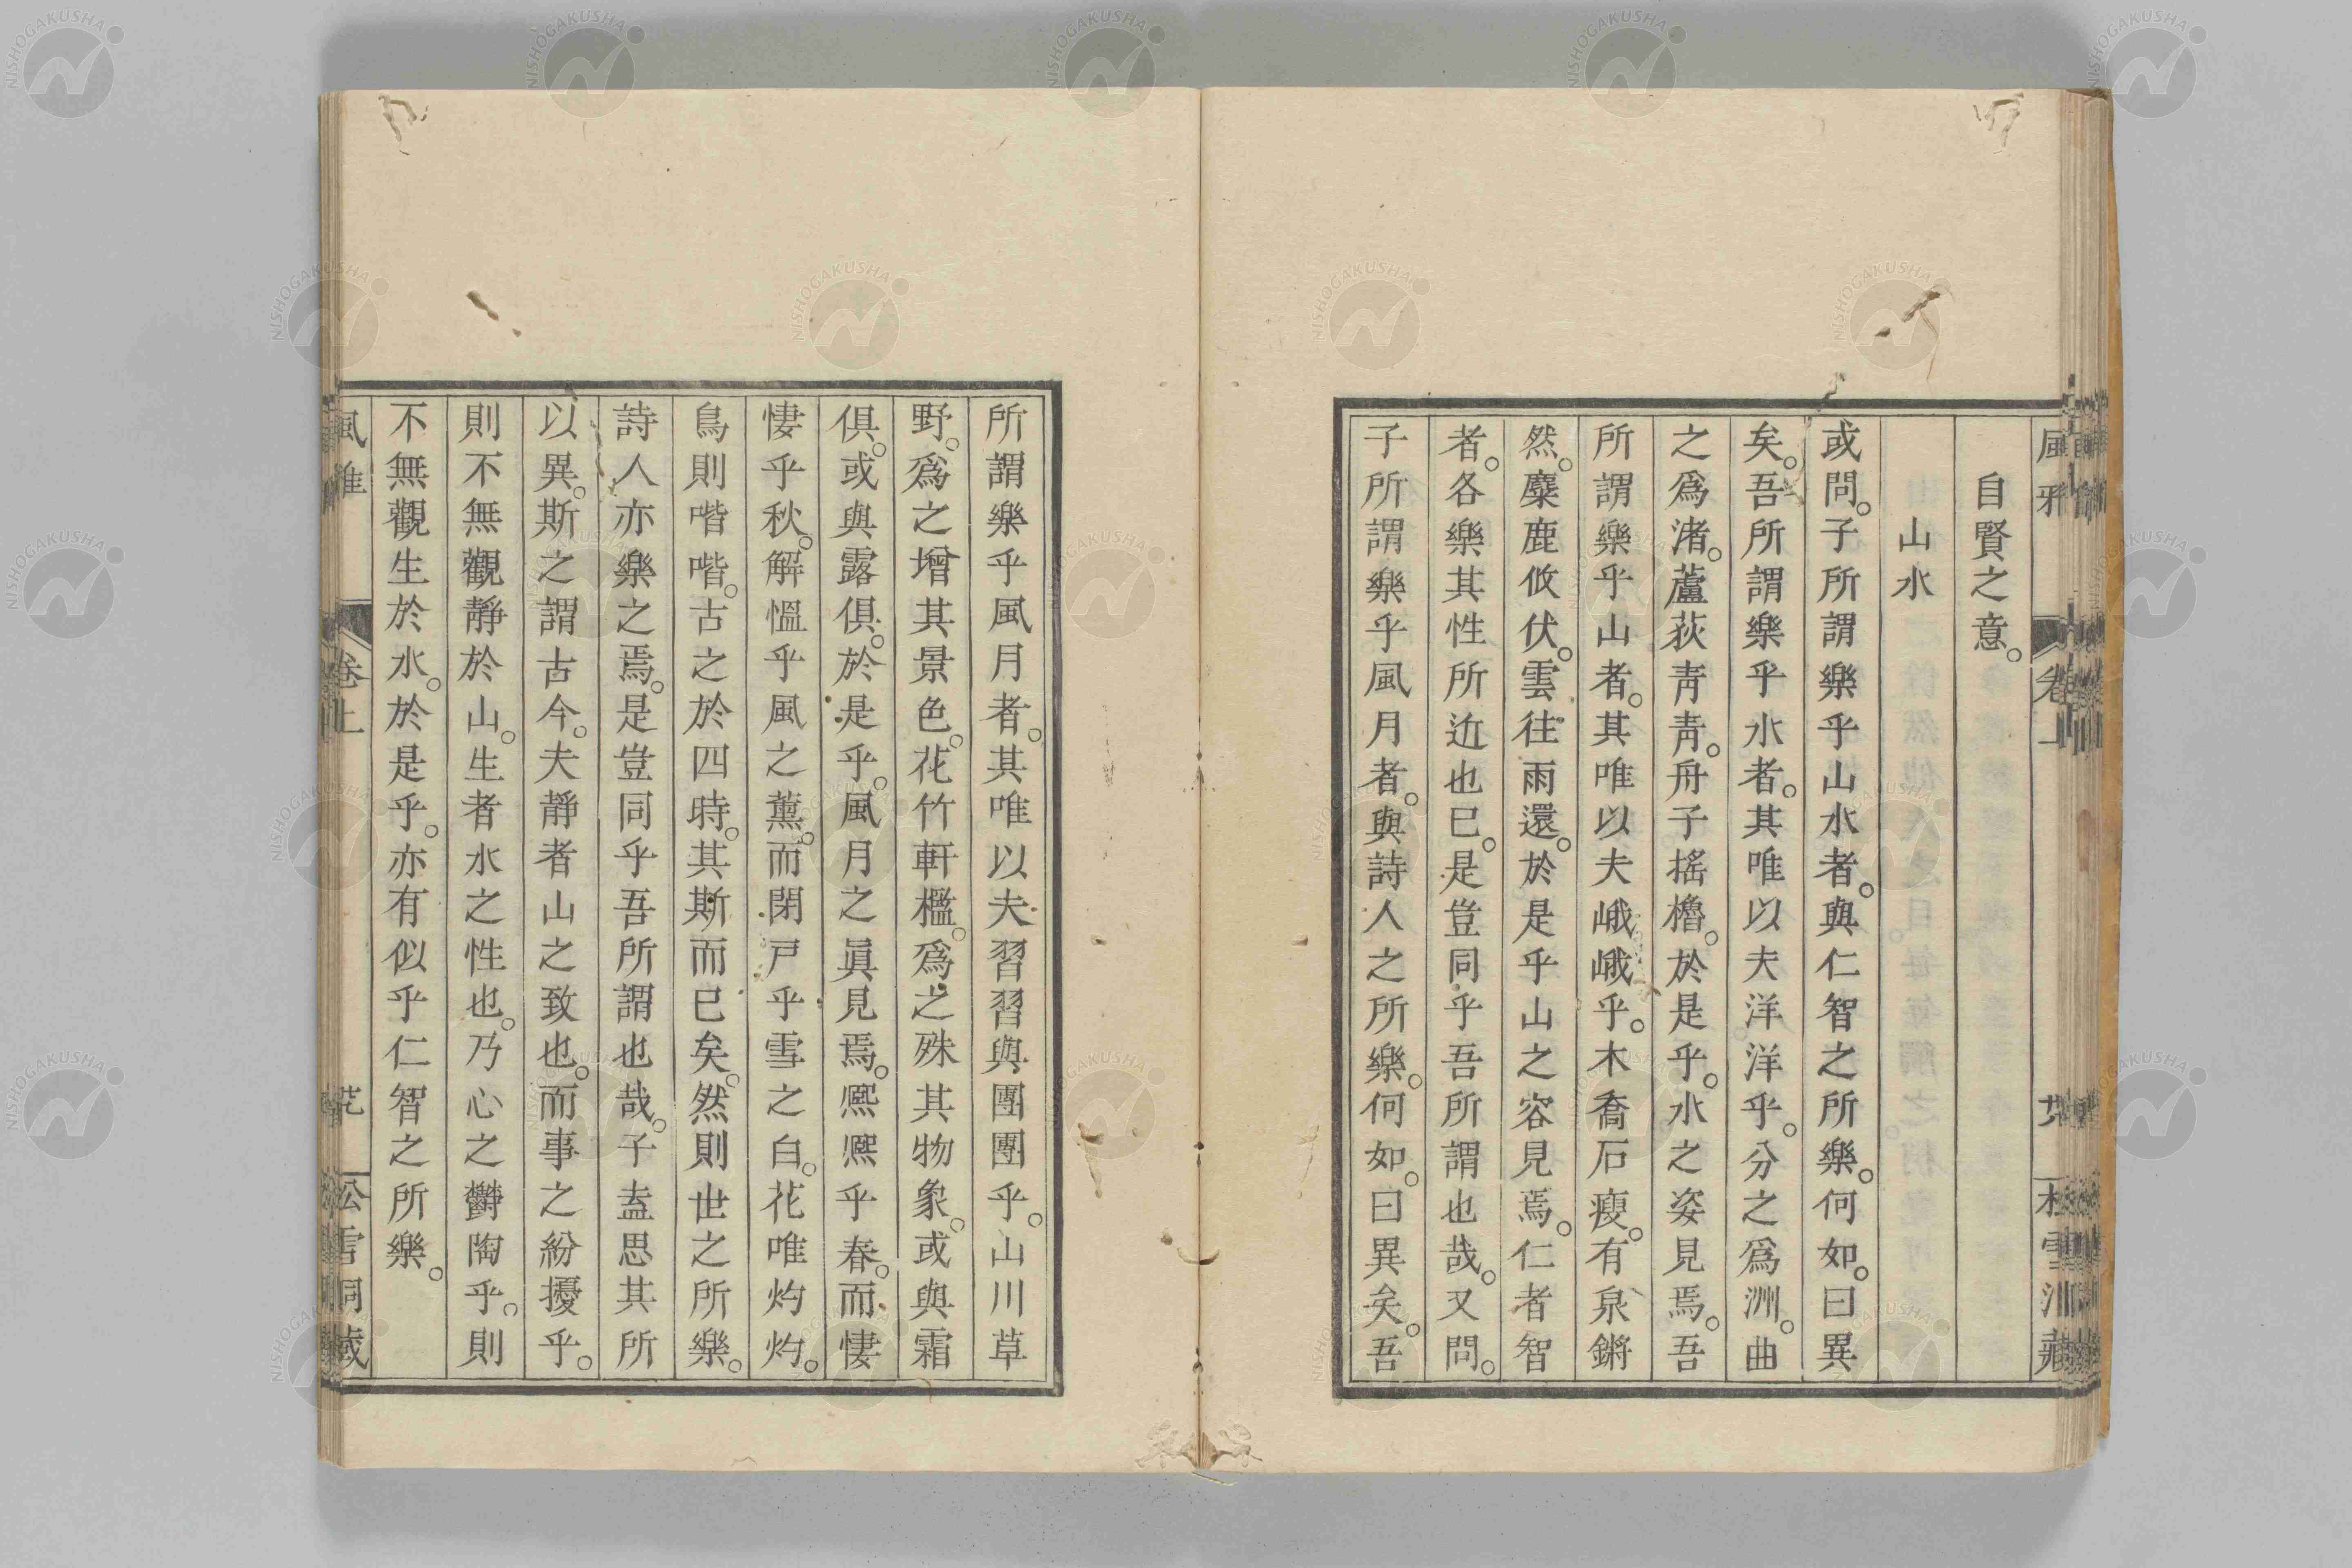 自賢之意。
山水
或問。子所謂樂乎山水者。與仁智之所樂。何如。曰異
矣。吾所謂樂乎水者。其唯以夫洋洋乎。分之爲洲。曲
之爲渚。蘆荻青青。舟子搖櫓。於是乎。水之姿見焉。吾
所謂樂乎山者。其唯以夫峨峨乎。木喬石瘦。有泉鏘
然。麋鹿攸伏。雲往雨還。於是乎山之容見焉。仁者智
者。各樂其性所近也已。是豈同乎吾所謂也哉。又問。
子所謂樂乎風月者。與詩人之所樂。何如。曰異矣。吾
所謂樂乎風月者。其唯以夫習習與團團乎。山川草
野。爲之增其景色。花竹軒檻。爲之殊其物象。或與霜
俱。或與露俱。於是乎。風月之眞見焉。熙熙乎春。而悽
悽乎秋。解慍乎風之薰。而閉戸乎雪之白。花唯灼灼。
鳥則喈喈。古之於四時。其斯而已矣。然則世之所樂。
詩人亦樂之焉。是豈同乎吾所謂也哉。子盍思其所
以異。斯之謂古今。夫靜者山之致也。而事之紛擾乎。
則不無觀靜於山。生者水之性也。乃心之鬱陶乎。則
不無觀生於水。於是乎。亦有似乎仁智之所樂。
風雅 卷上 松雪洞藏